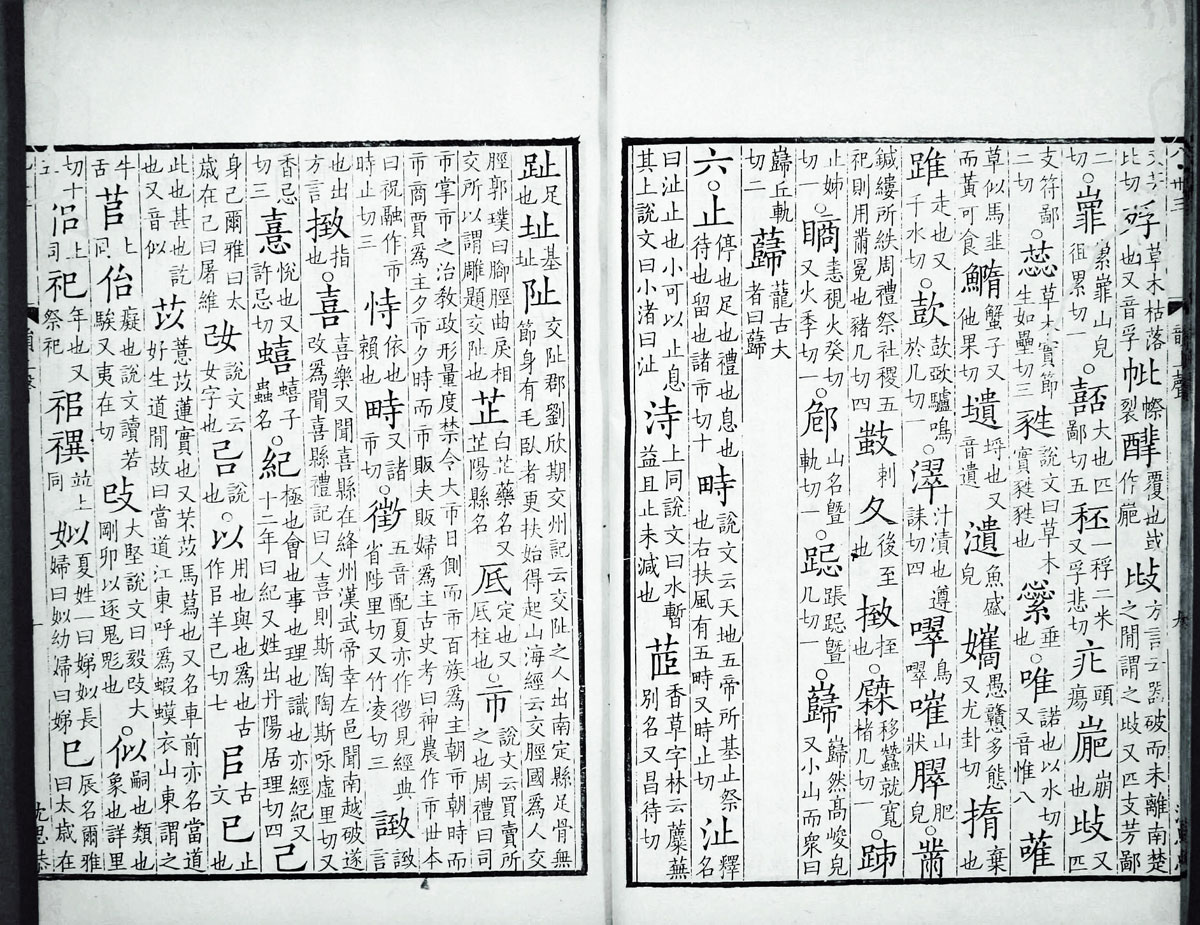 此切 殍 草木枯落也又音孚 幒裂 覆也或作嶏 㱟 方言云器破而未離南楚之閒謂之㱟又匹支芳鄙
二切○嶵 纍嶵山皃徂累切一○嚭 大也匹鄙切五 秠 一稃二米又孚悲切 㽱 頭瘍 嶏 崩也 㱟 又匹
支符鄙二切○蕊 草木實節生如壘切三 甤 說文曰草木實甤甤也 繠 垂也○唯 諾也以水切又音惟八 蓶
草似馬韭而黃可食 鱦 蟹子又他果切 壝 埒也又音遺 瀢 魚盛皃 孈 愚戇多態又尤卦切 撱 棄也
踓 走也又千水切○㰻 㰻㰲驢鳴於几切一○濢 汁漬也遵誄切四 噿 鳥噿 嗺 山狀 臎 肥皃○黹
鍼縷所紩周禮祭社稷五祀則用黹冕也豬几切四 𢾫 刺也 夂 後至也 㨖 挃也○㯖 移蠶就寬楮几切一○䟸
止姊切一○瞲 恚視火癸切又火季切一○郈 山名暨軌切一○跽 䟰跽暨几切一○巋 巋然高峻皃又小山而衆曰
巋丘軌切二 蘬 蘢古大者曰蘬
六○止 停也足也禮也息也待也留也諸市切十 畤 說文云天地五帝所基止祭也右扶風有五畤又時止切 沚 釋名
曰沚止也小可以止息其上說文曰小渚曰沚 洔 上同說文曰水暫益且止未減也 茝 香草字林云蘪蕪別名又昌待切
趾 足也 址 基址 阯 交阯郡劉欣期交州記云交阯之人出南定縣足骨無節身有毛臥者更扶始得起山海經云交脛國爲人交
脛郭璞曰腳脛曲戾相交所以謂雕題交阯也 芷 白芷藥名又芷陽縣名 厎 定也又厎柱也○市 說文云買賣所之也周禮曰司
市掌市之治教政形量度禁令大市日側而市百族爲主朝市朝時而市商賈爲主夕市夕時而市販夫販婦爲主古史考曰神農作市世本
曰祝融作市時止切三 恃 依也賴也 畤 又諸市切○徵 五音配夏亦作徴見經典省陟里切又竹凌切三 䛗 䛗言
也出方言 㨖 指也○喜 喜樂又聞喜縣在絳州漢武帝幸左邑聞南越破遂改爲聞喜縣禮記曰人喜則斯陶陶斯咏虛里切又
香忌切三 憙 悅也又許忌切 蟢 蟢子蟲名○紀 極也會也事也理也識也亦經紀又十二年曰紀又姓出丹陽居理切四 己
身己爾雅曰太歲在己曰屠維 改 說文云女字也 㠱 說文也○以 用也與也爲也古作㠯羊己切七 㠯 古文 已 止也
此也甚也訖也又音似 苡 薏苡蓮實也又芣苡馬蕮也又名車前亦名當道好生道閒故曰當道江東呼爲蝦蟆衣山東謂之
牛舌 苢 上同 佁 癡也說文讀若騃又夷在切 攺 大堅說文曰毅攺大剛卯以逐鬼鬽也○似 嗣也類也象也詳里
切十五 侣 上司 祀 年也又祭祀 禩 竝上同 姒 夏姓一曰娣姒長婦曰姒幼婦曰娣 巳 辰名爾雅曰太歲在